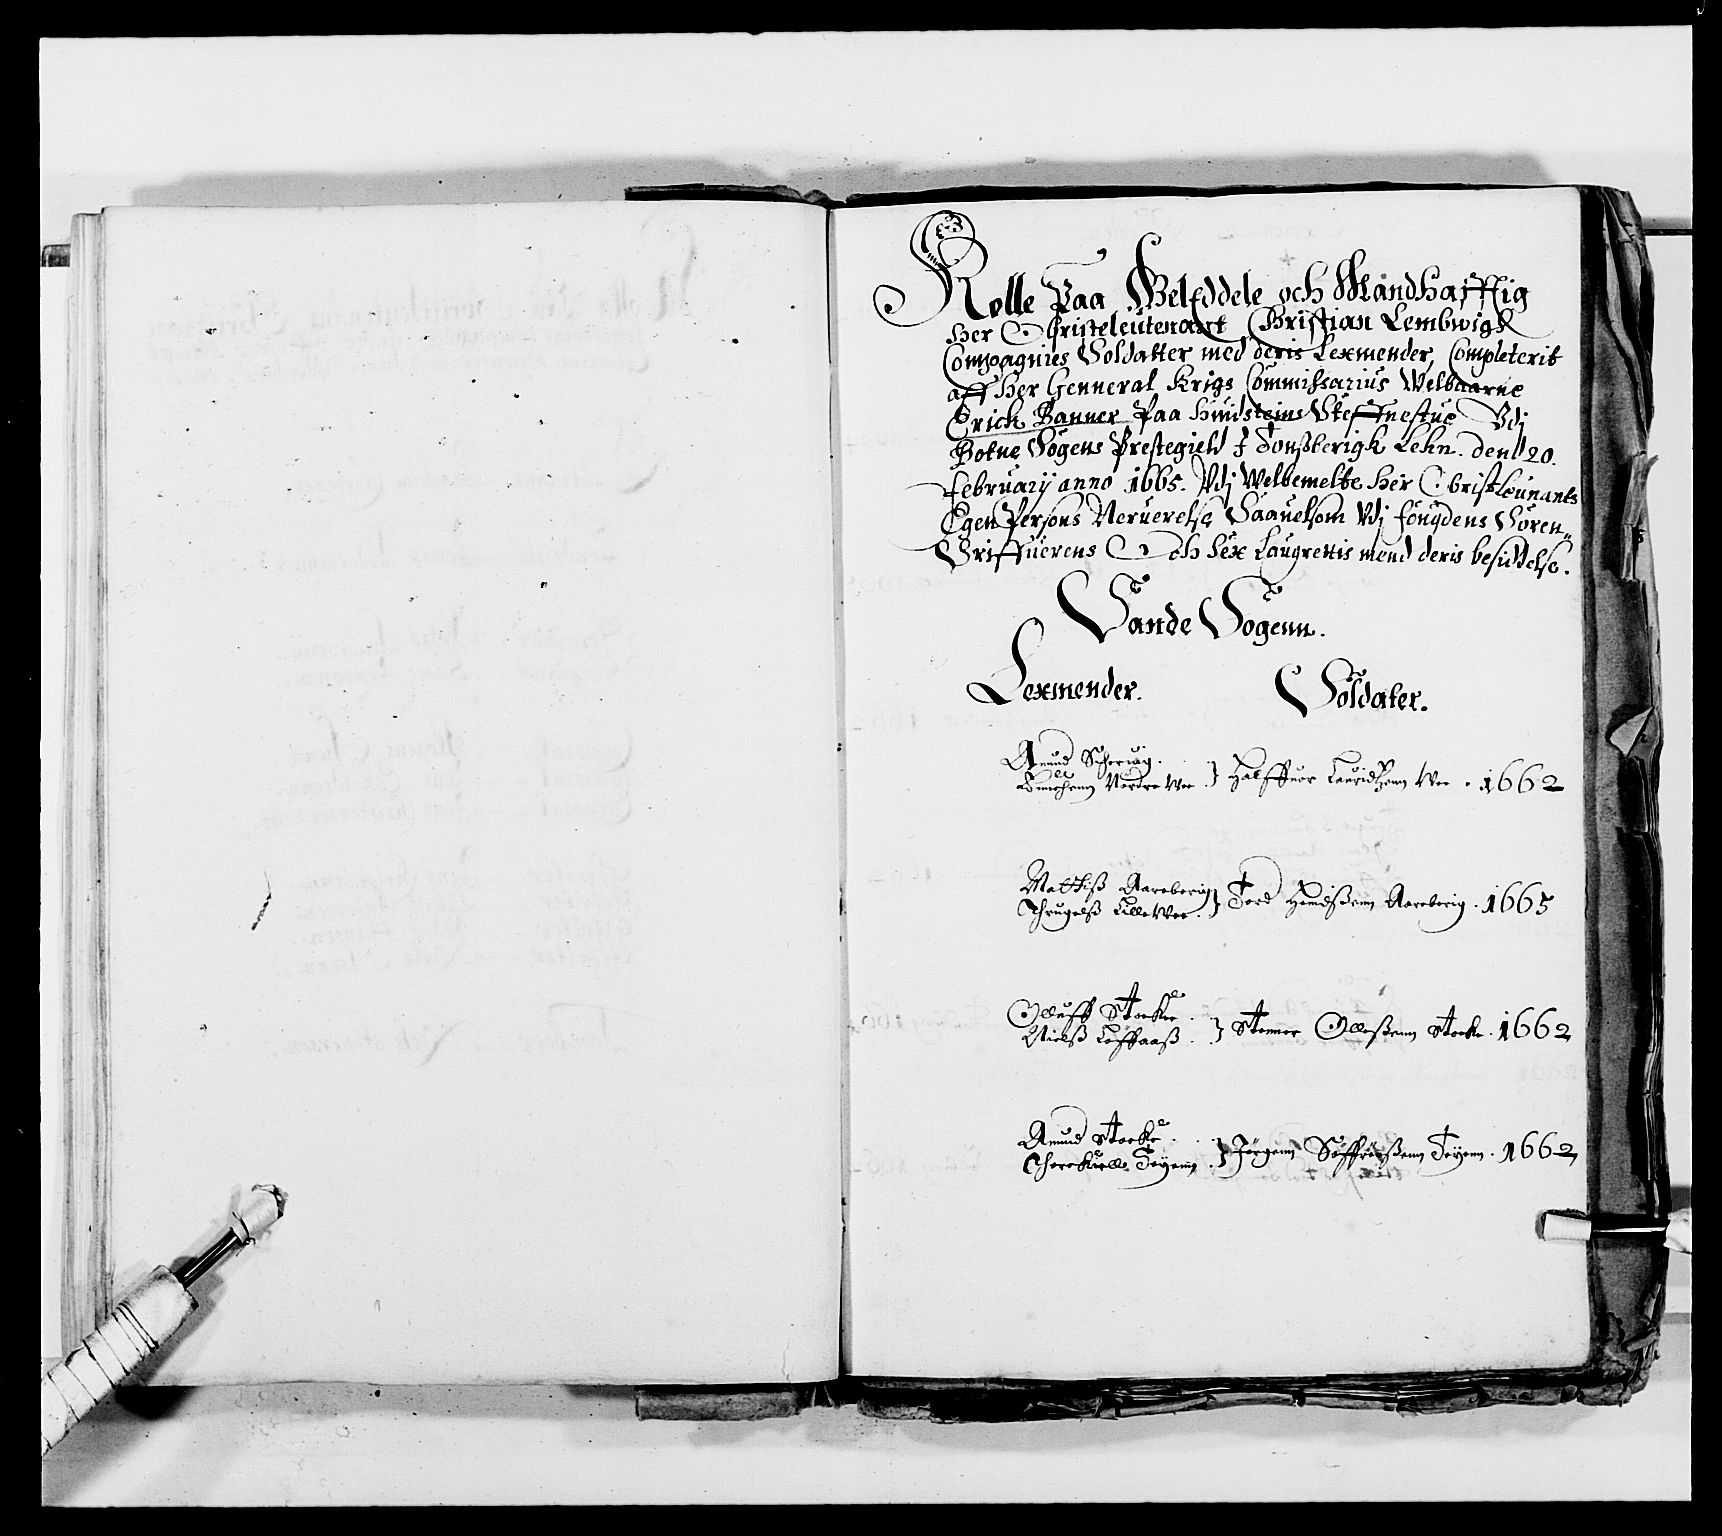 Rolle Paa Wel Eddele och Mandhafftig
Her Obristeleutenant Christian Lembwigk
Compagnies Soldatter med deris Lexmender, Completerit
aff Her Genneral Krigs Commihsarius Welbaarne
Erick Banner Paa Huidsteins Skeffnestue Vdj
Botne Sogens Prestegield I Tonsberigk Lehn. denl 20.
February anno 1665. Vdj Welbemelte Her Obristleunants
Egen Persons Neruerelse Saauelsom Vdj fougdens Soren
Schriffuerens Och Sex Laugrettis mend deris besiddelse.
Sande Sogenn.
Lexmender. Soldater.
Amund
Nordre Wee } Halffuor Lauridhenn Wee . 1662
Matthiß Aareberig
Thrugelß Lille Wee . } Tord Aareberig . 1665
Olluff Stocke .
Nielß . } Stener Olleßenn Stocke . 1662
Amund Stocke .
Thorekielle Töyenn . } Jörgenn Söffrenßenn Töyenn . 1662